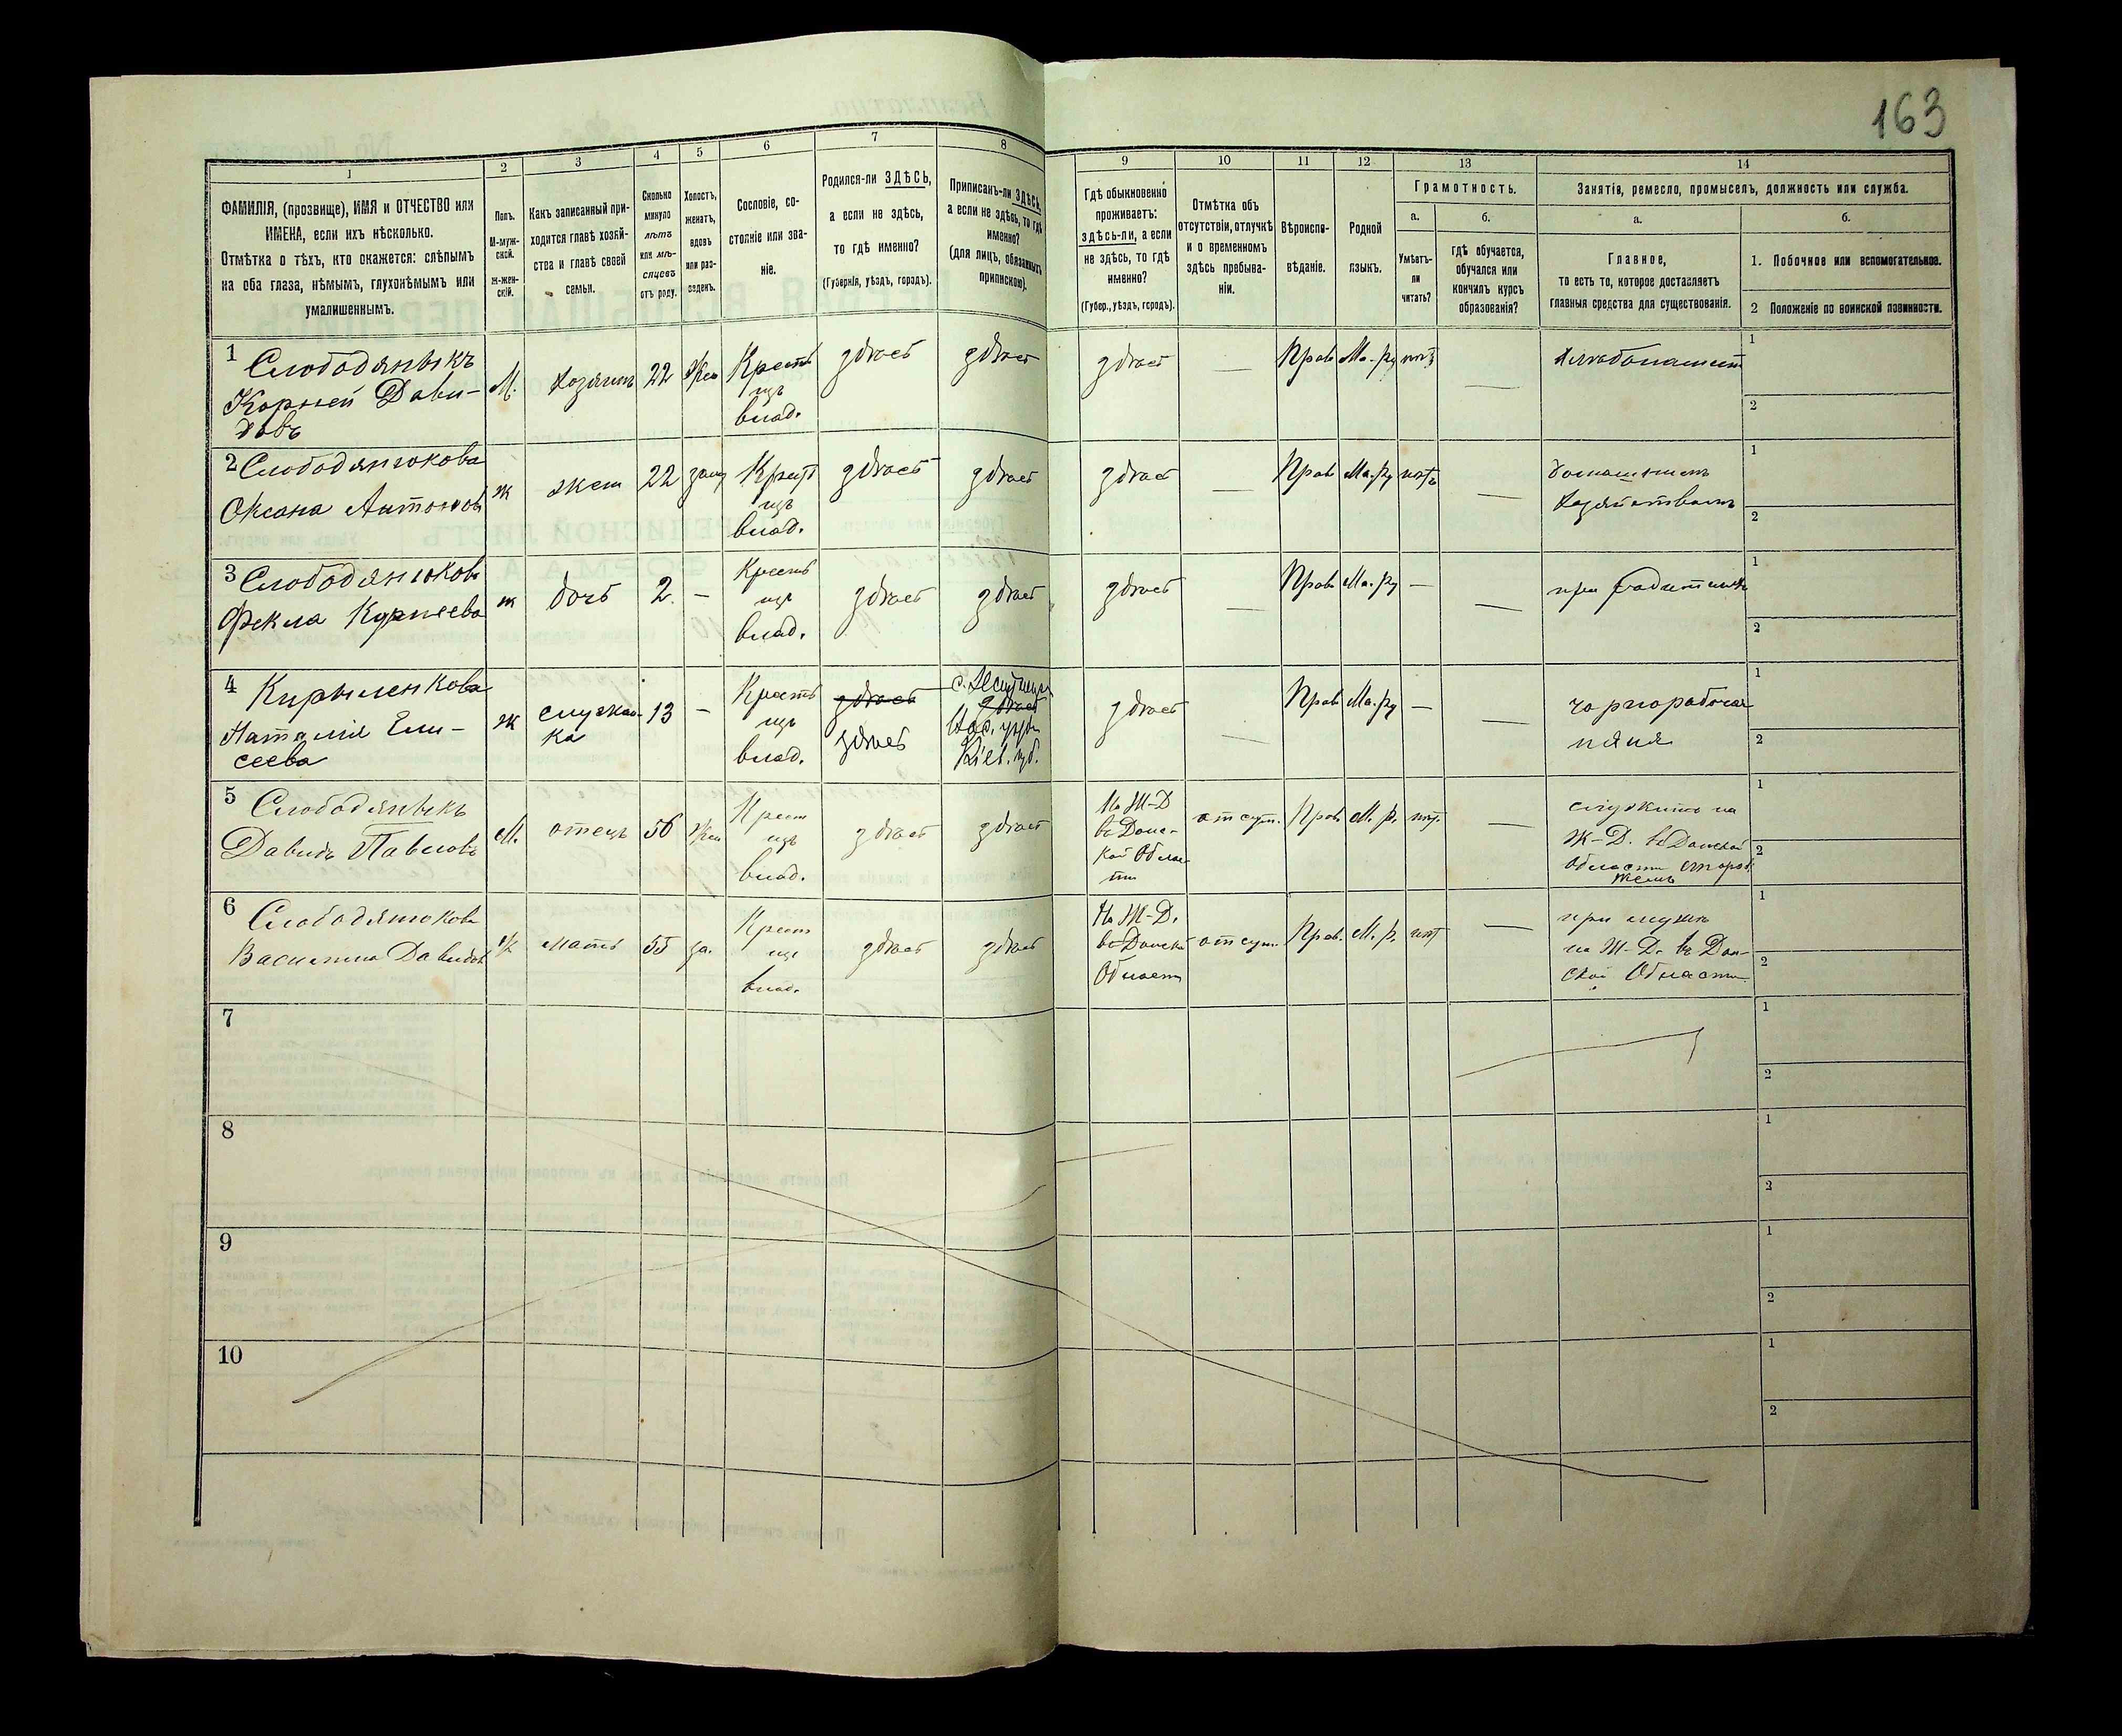 163
1
2
3
4
5
6
7
8
9
10
11
12
13
14
ФАМИЛІЯ, (прозвище), ИМЯ и ОТЧЕСТВО или
ИМЕНА, если ихъ нѣсколько.
Отмѣтка о тѣхъ, кто окажется: слѣпымъ
на оба глаза, нѣмымъ, глухонѣмымъ или
умалишеннымъ.
Полъ.
М-муж-
ской.
Ж-жен-
скій.
Какъ записанный при-
ходится главѣ хозяй-
ства и главѣ своей
семьи.
Сколько
минуло
лѣтъ
или мѣ-
сяцевъ
отъ роду.
Холостъ,
женатъ,
вдовъ
или раз-
веденъ.
Сословіе, со-
стояніе или зва-
ніе.
Родился-ли ЗДѢСЬ,
а если не здѣсь,
то гдѣ именно?
(Губернія, уѣздъ, городъ).
Приписанъ-ли ЗДѢСЬ,
а если не здѣсь, то гдѣ
именно?
(для лицъ, обязанныхъ
припискою).
Гдѣ обыкновенно
проживаетъ:
здѣсь-ли, а если
не здѣсь, то гдѣ
именно?
(Губер., уѣздъ, городъ).
Отмѣтка объ
отсутствіи, отлучкѣ
и о временномъ
здѣсь пребыва-
ніи.
Вѣроиспо-
вѣданіе.
Родной
языкъ.
Грамотность.
а.
Умѣетъ-
ли
читать?
б.
гдѣ обучается,
обучался или
кончилъ курсъ
образованія?
Занятія, ремесло, промыселъ, должность или служба.
а.
Главное,
то есть то, которое доставляетъ
главныя средства для существованія.
б.
1. Побочное или вспомогательное.
2 Положеніе по воинской повинности.
1 Слободяныкъ
Корней Дави-
довъ
М. хозяинъ 22 Жен
Крестъ
изъ
влад.
здѣсь здѣсь здѣсь — Прав Ма-ру нѣтъ — хлебопашест
1
2
2 Слободянюкова
Оксана Антонов
ж жена 22 зам
Крест
изъ
влад.
здѣсь здѣсь здѣсь — Прав Ма-ру нѣтъ —
домашнимъ
хозяйствомъ
1
2
3 Слободянюкова
Фекла Корнеева
ж дочь 2. —
Крестъ
изъ
влад.
здѣсь здѣсь здѣсь — Прав Ма.ру — — при родителяхъ
1
2
4 Кирыленкова
Наталія Ели-
сеева
ж служан-
ка
13 —
Крестъ
изъ
влад.
здѣсь
здѣсь
здѣсь
Кіев. губ.
здѣсь — Прав Ма.ру — —
чорнорабочая
няня
1
2
5 Слободяныкъ
Давидъ Павловъ
М. отецъ 56 Жен
Крест
изъ
влад.
здѣсь здѣсь
На Ж-Д
въ Донс-
кой Облас-
ти
отсут. Прав М. р. нѣт. —
служитъ на
Ж-Д. въ Донской
Области сторо
жемъ
1
2
6 Слободянюкова
Василина Давидов
Ж мать 55 за.
Крест
изъ
влад.
здѣсь здѣсь
На Ж-Д.
въ Донской
Области
отсут. Прав. М. р. нѣт —
при мужѣ
на Ж-Д. въ Дон-
ской Области
1
2
7
1
2
8
1
2
9
1
2
10
1
2